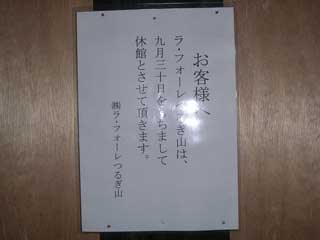 お客様へ
ラ・フォーレつるぎ山は、
九月三十日をもちまして
休館とさせて頂きます。
㈱ラ・フォーレつるぎ山